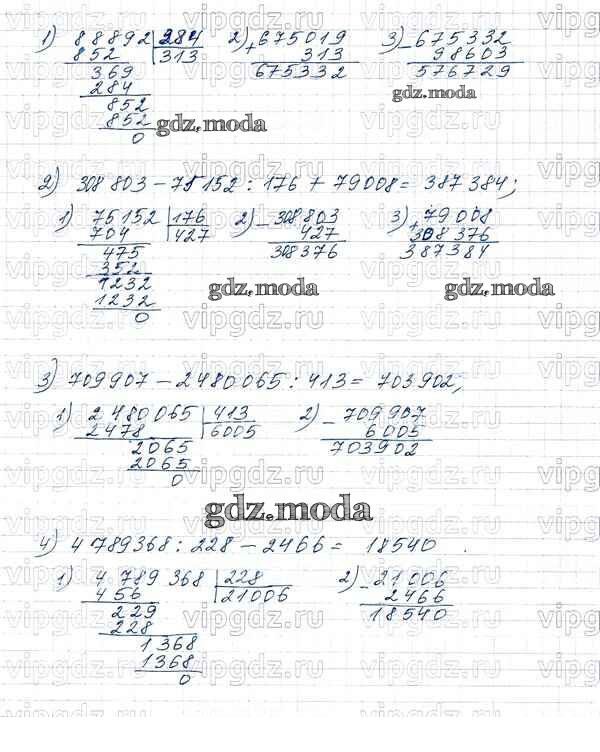 1) 88892 284 2) + 675019 3) - 675332
852 313 313 98603
369 675332 576729
284 gdz.moda
852
852 gdz.moda
0
2) 308 803 - 75152 : 176 + 79008 = 387 384;
1) 75152 176 2) - 308 803 3) + 79008
704 427 427 308 376
475 308376 387384
352
1232 gdz.moda gdz.moda
1232
0
3) 709907 - 2480065 : 413 = 703902;
1) 2480065 413 2) - 709907
2478 6005 6005
2065 703902
2065
0
gdz.moda
4) 4789368 : 228 - 2466 = 18540.
1) 4 789 368 228 2) - 21006
456 21006 2466
229 18540
228
1368
1368
0
vipgdz.ru